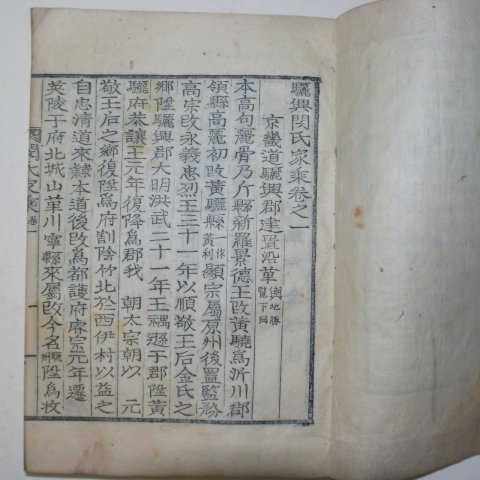 驪興閔氏家乘卷之一
京畿道驪興郡建置沿革輿地勝覽下同
本高句麗骨乃斤縣新羅景德王改黃驍爲沂川郡
領縣高麗初改黃驪縣一作黃利顯宗屬原州後置監務
高宗改永義忠烈王三十一年以順敬王后金氏之
鄕陞驪興郡大明洪武二十一年王禑遜于郡陞黃
驪府恭讓王元年復降爲郡我 朝太宗朝以 元
敬王后之鄕復陞爲府割陰竹北於西伊村以益之
自忠淸道來隸本道後改爲都護府睿宗元年遷
英陵于府北城山革川寧縣來屬改今名驪州陞爲牧
閔氏家乘 卷一